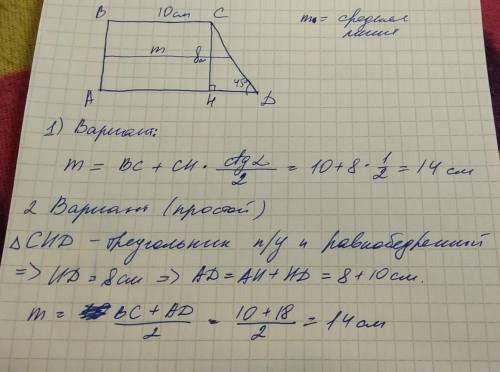 B 10см C
m = средняя
линия
m 8см
45°
A H D
1) Вариант:
m = BC + CH · ctg α / 2 = 10 + 8 · 1/2 = 14 см
2 Вариант (простой)
△CHD – треугольник п/у и равнобедренный
=> HD = 8см => AD = AH + HD = 8 + 10 см.
m = BC + AD / 2 = 10 + 18 / 2 = 14 см